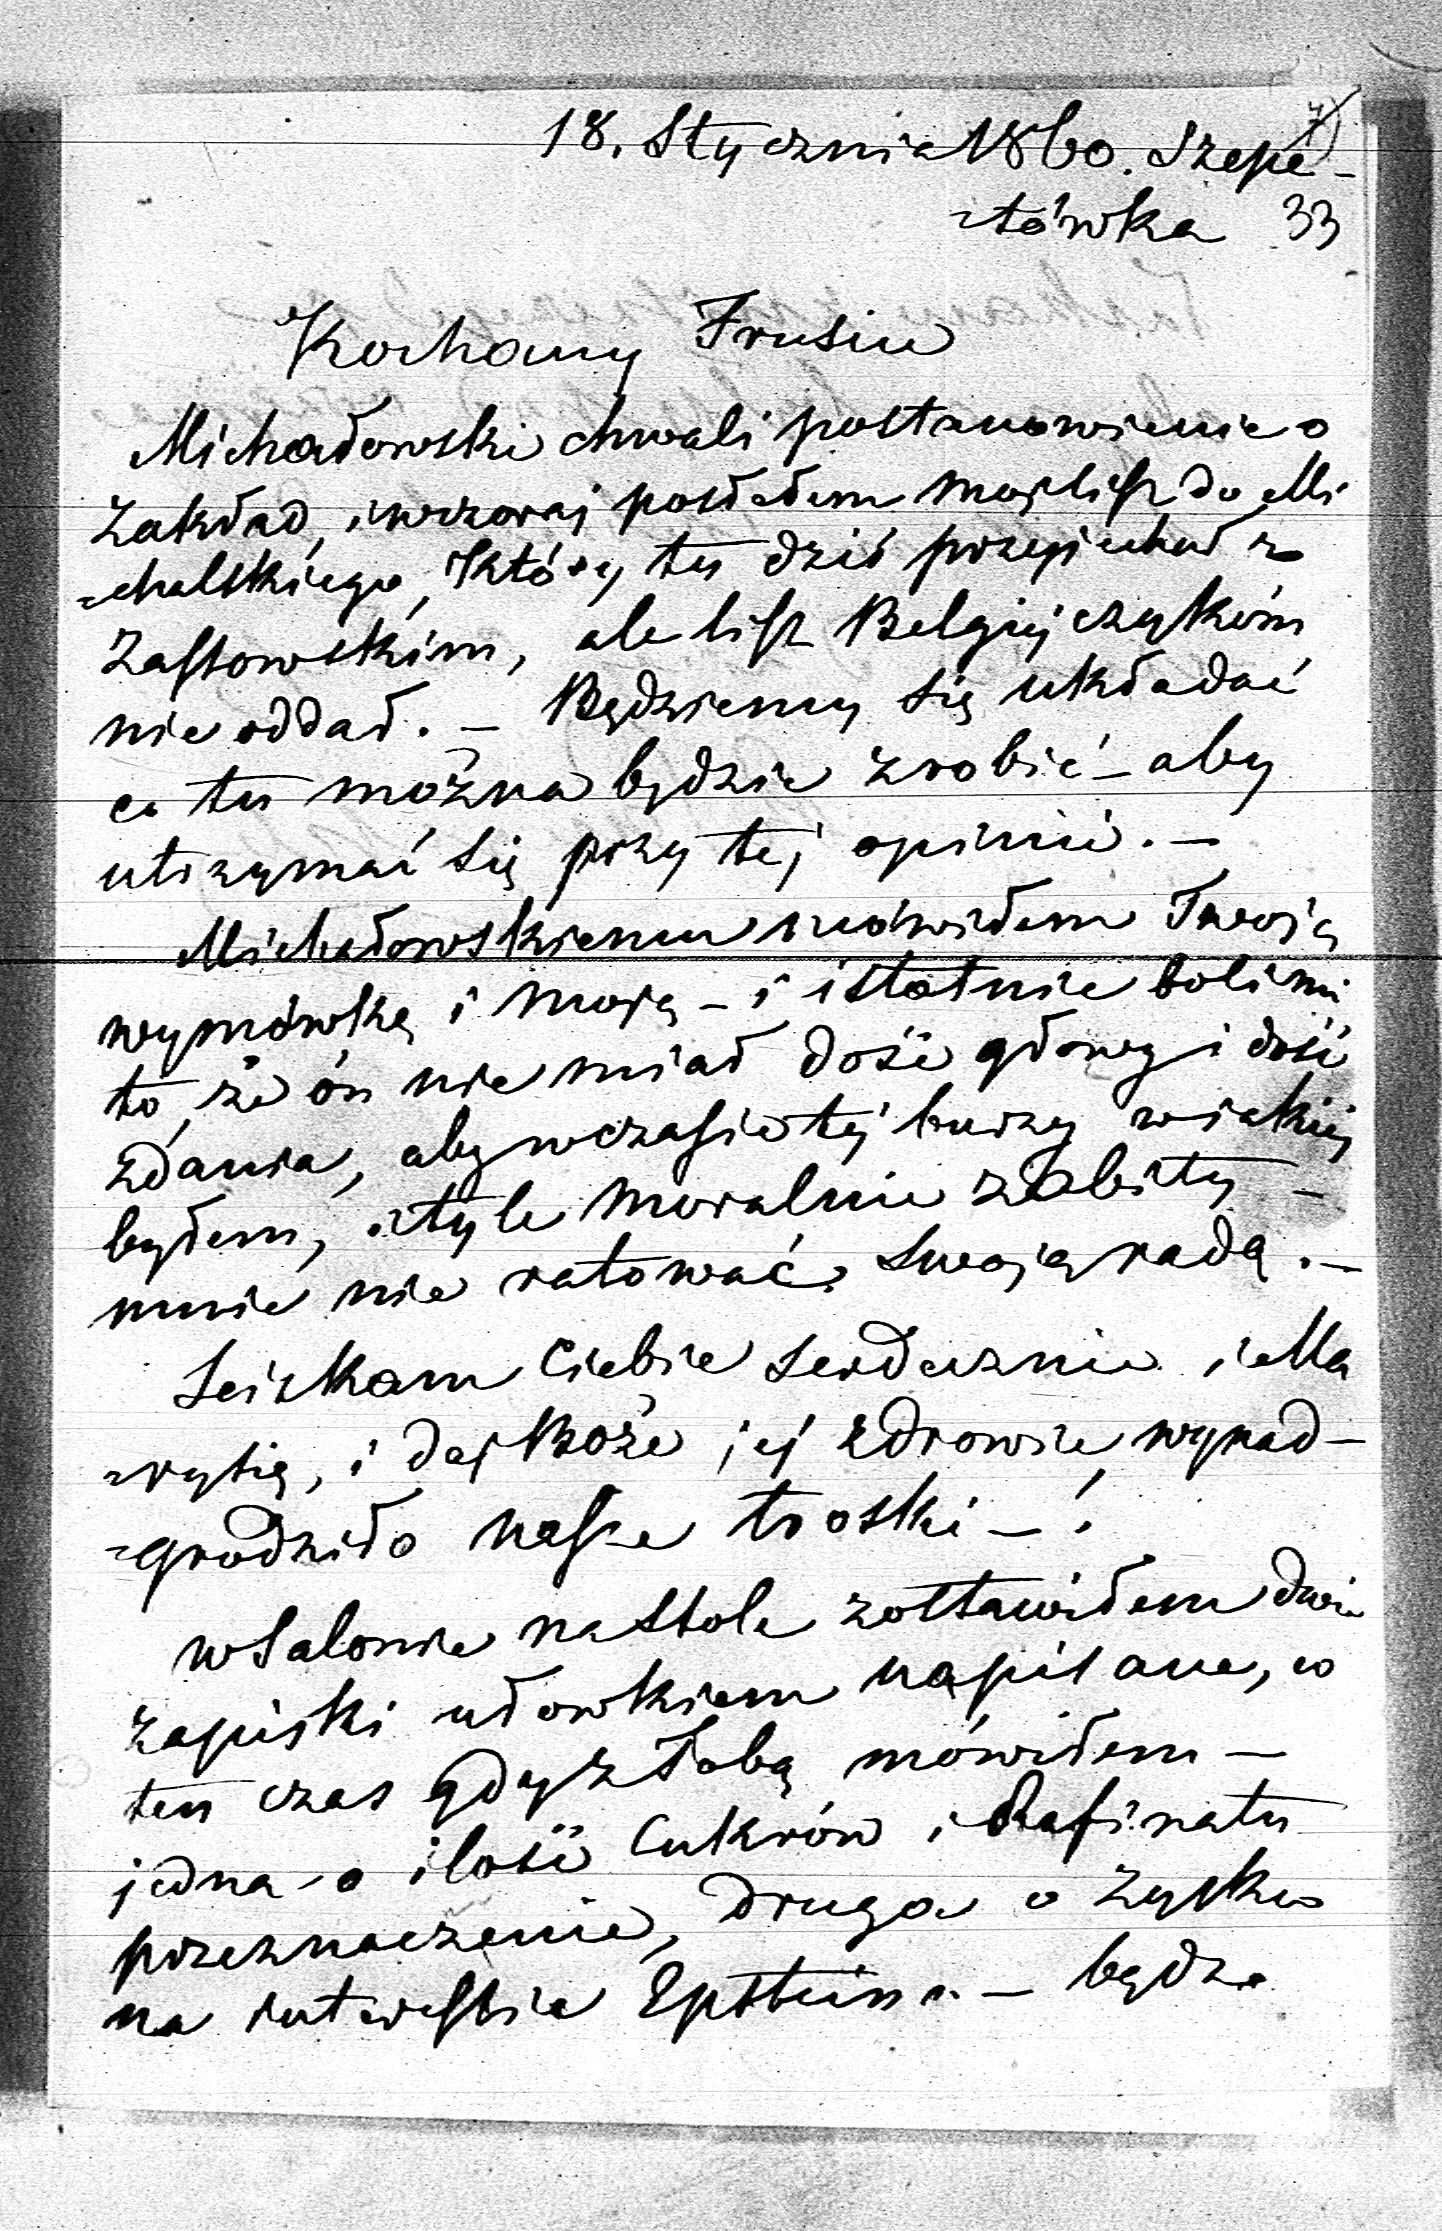 18. Stycznia 1860. Szepe-
-tówka 33
Kochany Frusiu
Michałowski chwali postanowienie o
zakład, i wczoraj posłałem mój list do Mi
-chalskiego, który tu dziś przyjechał z
Zastowskim, ale list Belgijczyków
nie oddał. - Będziemy się układać
co tu można będzie zrobić - aby
utrzymać się przy tej opinii. -
Michałowskiemu mówiłem Twoją
wymówkę i moją - i istotnie boli mi
to, że ón nie miał dość głowy i dość
zdania, aby w czasie tej burzy w jakiéj
byłem, i tyle moralnie zabity -
mnie nie ratować swoją radą. -
Sciskam Ciebie serdecznie i Ma
-rysią, i daj Boże jej zdrowie, wynad-
-grodziło nasze troski - !
w Salonie na stole zostawiłem dwie
zapiski ołowkiem napisane, w
ten czas gdy z Tobą mówiłem -
jedna - o ilość Cukrów i Rafinatu
przeznaczenie, druga o zysku
na interesie Epsteina. - będzie